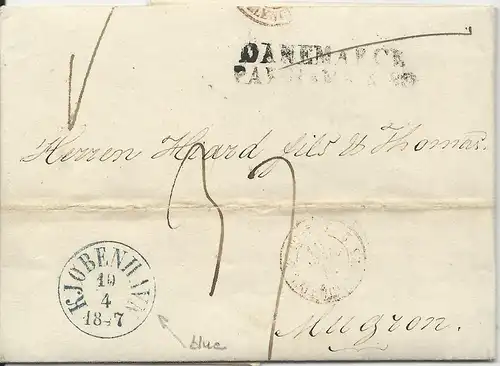 DANEMARCK
PAR HAMBOURG
Herren Huard fils & Thomas.
37
KJØBENHAVN
19
4
1847
blue
Mugron.